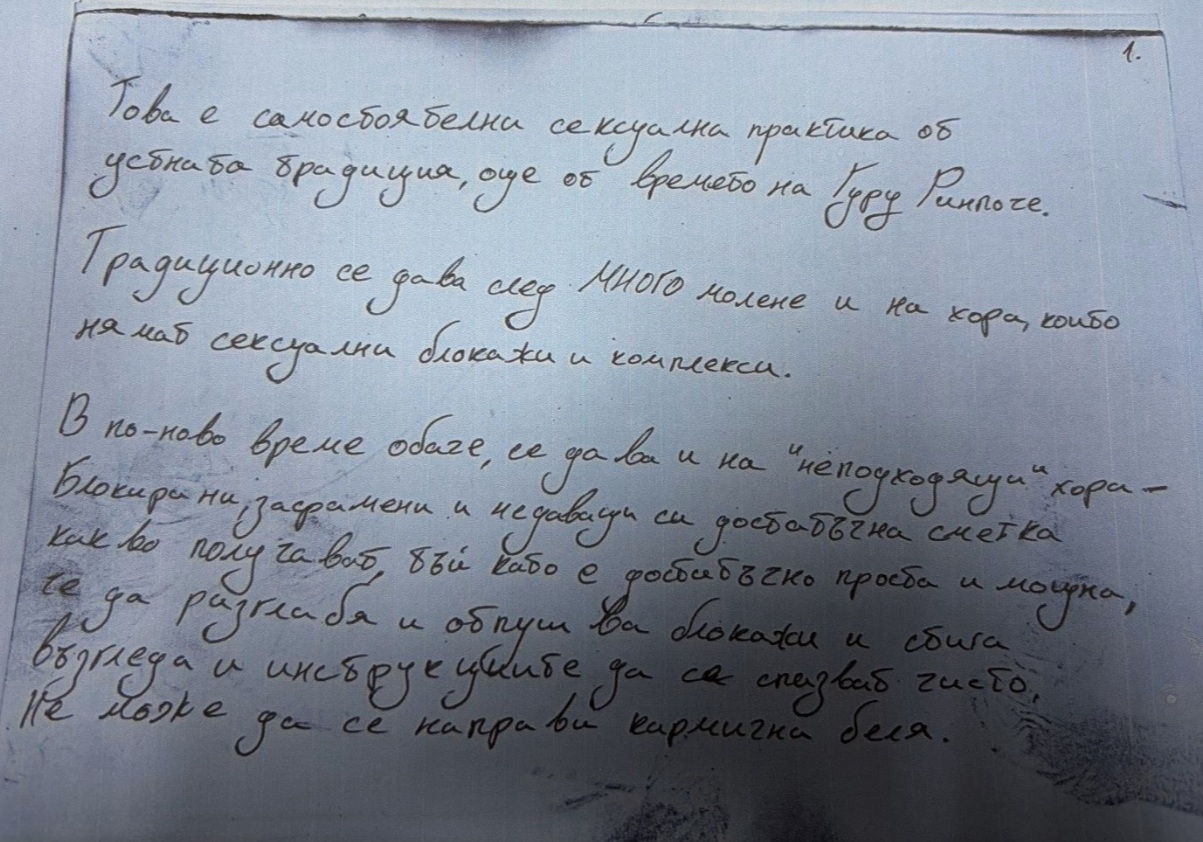 1.
Това е самостоятелна сексуална практика от
устната традиция, още от времето на Гуру Ринпоче.
Традиционно се дава след МНОГО молене и на хора, които
нямат сексуални блокажи и комплекси.
В по-ново време обаче, се дава и на "неподходящи" хора -
Блокирани, засрамени и недаващи си достатъчна сметка
какво получават, тъй като е достатъчно проста и мощна,
че да разглабя и отпушва блокажи и стига
възгледа и инструкциите да се спазват чисто,
Не може да се направи кармична беля.